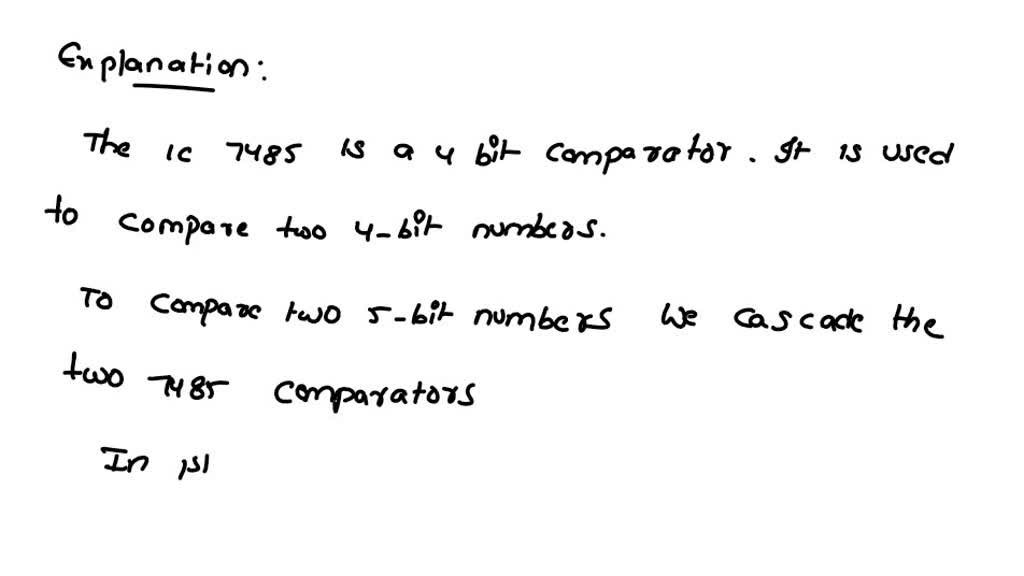 Explanation:
The IC 7485 is a 4 bit comparator. It is used
to compare two 4-bit numbers.
To compare two 5-bit numbers we cascade the
two 7485 comparators
In